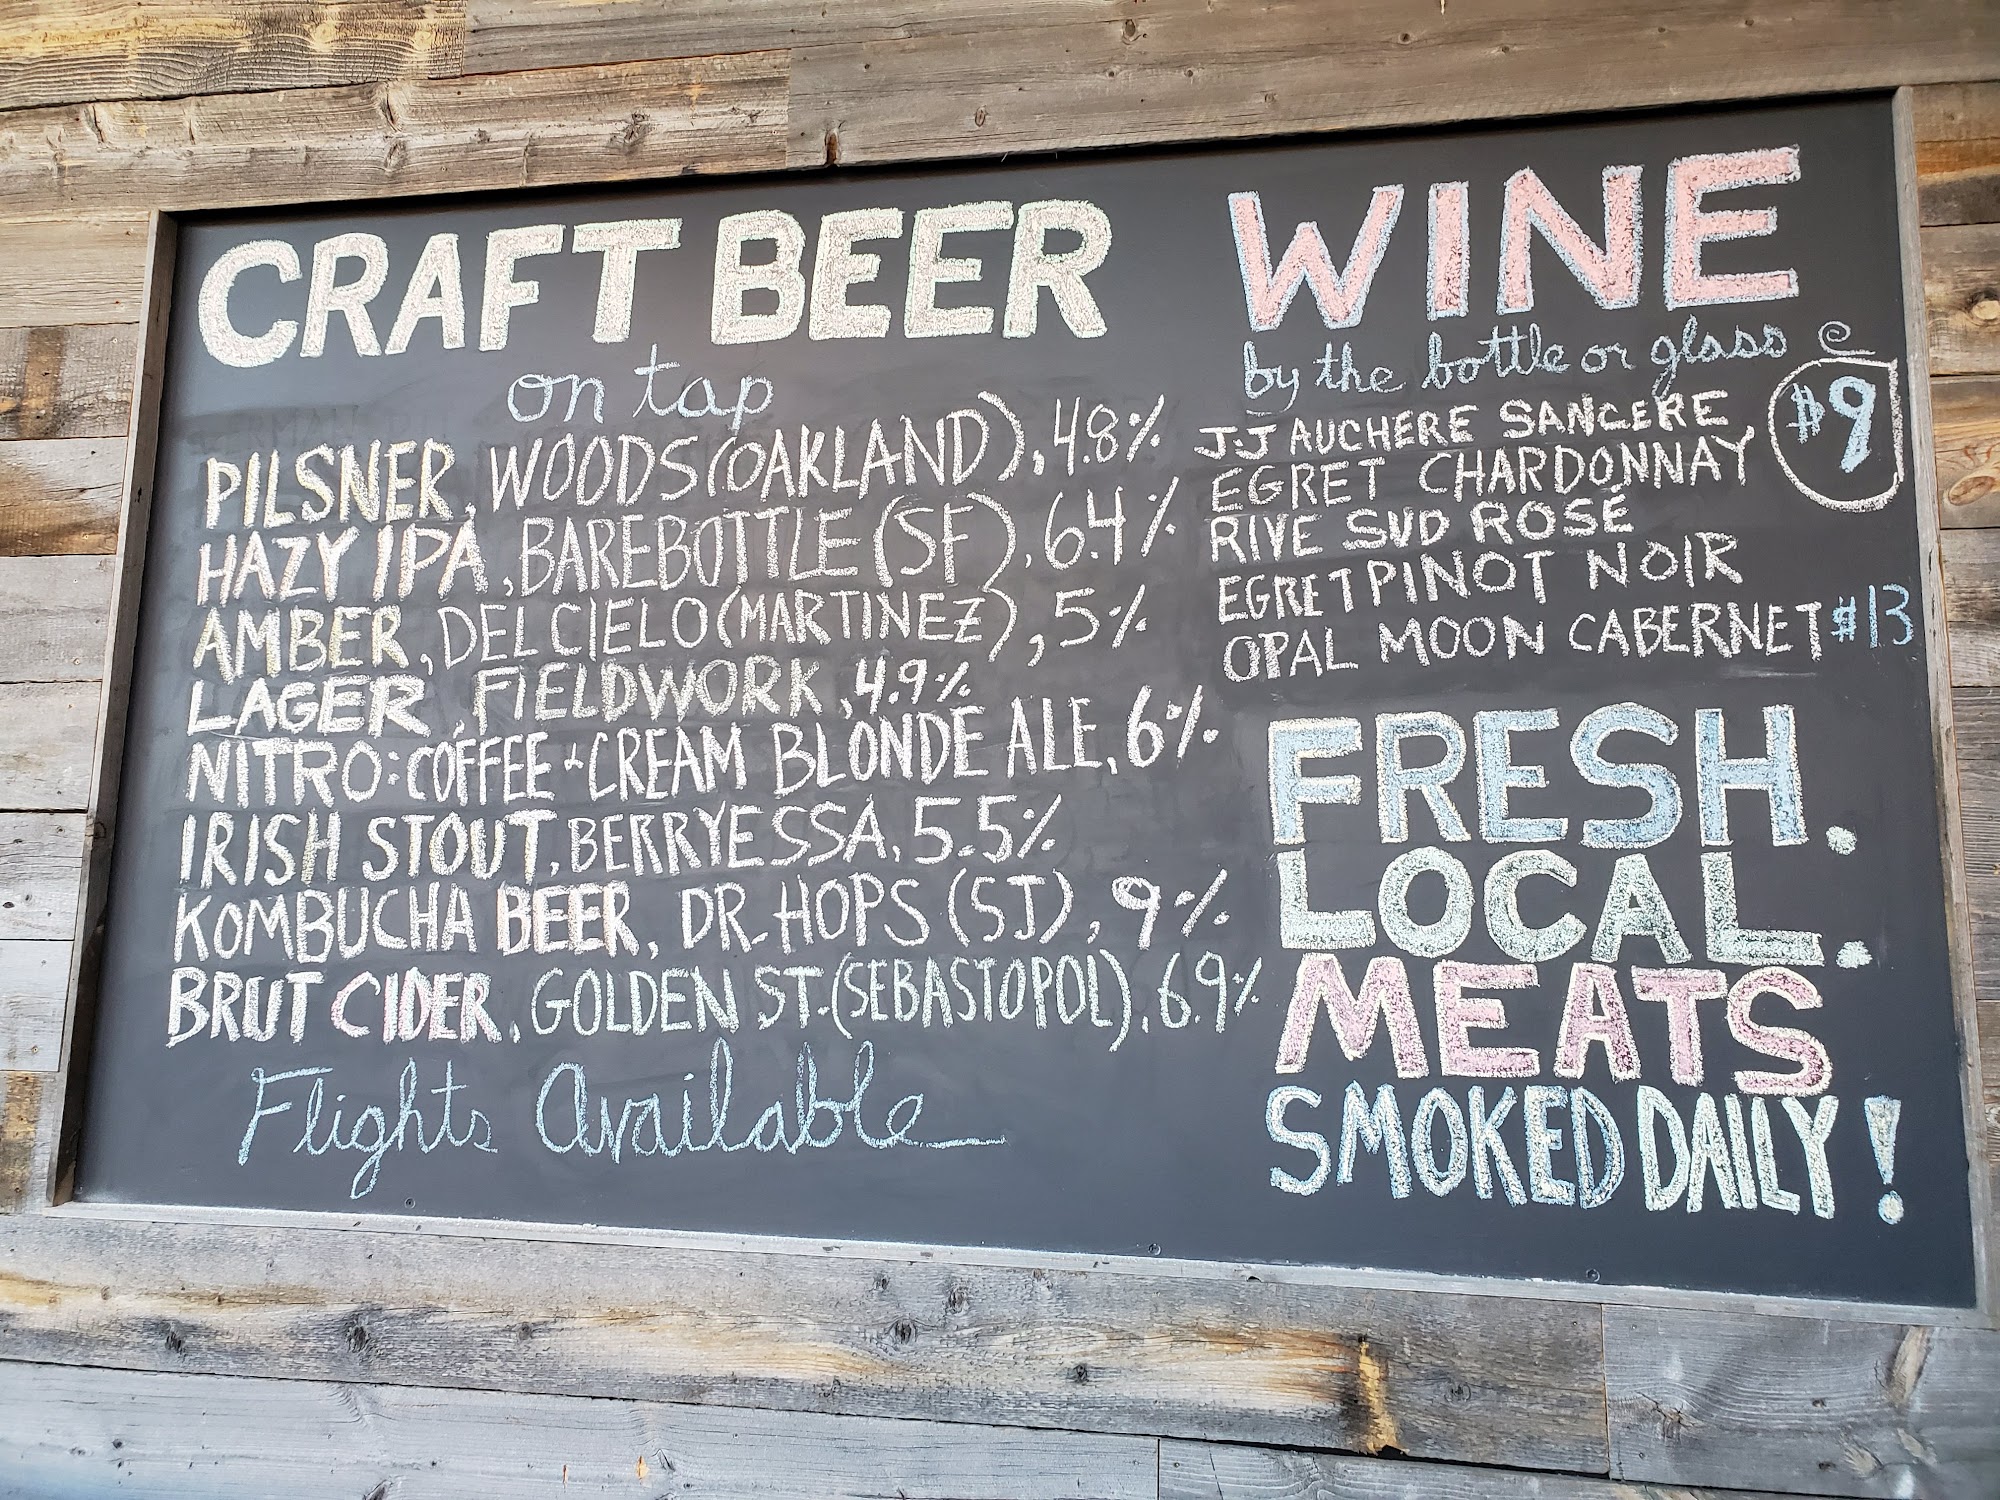 CRAFT BEER
on tap
PILSNER, WOODS (OAKLAND), 4.8%
HAZY IPA, BAREBOTTLE (SF), 6.4%
AMBER, DEL CIELO (MARTINEZ), 5%
LAGER, FIELDWORK, 4.9%
NITRO: COFFEE + CREAM BLONDE ALE, 6%
IRISH STOUT, BERRYESSA, 5.5%
KOMBUCHA BEER, DR. HOPS (SJ), 9%
BRUT CIDER, GOLDEN ST. (SEBASTOPOL), 6.9%
Flights Available
WINE
by the bottle or glass @
$9
J.J AUCHERE SANCERE
EGRET CHARDONNAY
RIVE SUD ROSÉ
EGRET PINOT NOIR
OPAL MOON CABERNET $13
FRESH.
LOCAL.
MEATS
SMOKED DAILY!